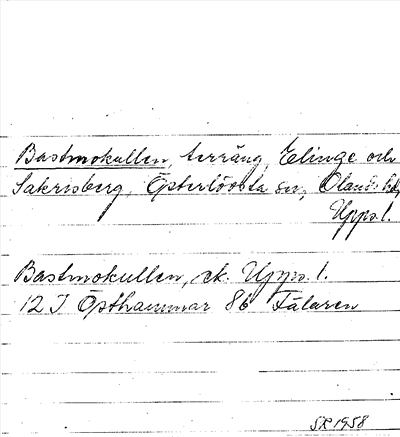 Bastmokullen, terräng, Elinge och
Sakrisberg, Österlövsta sn, Olands hd,
Upps. l.
Bastmokullen, ek. Upps. l.
12 I Östhammar 86 Fälaren
SR 1958